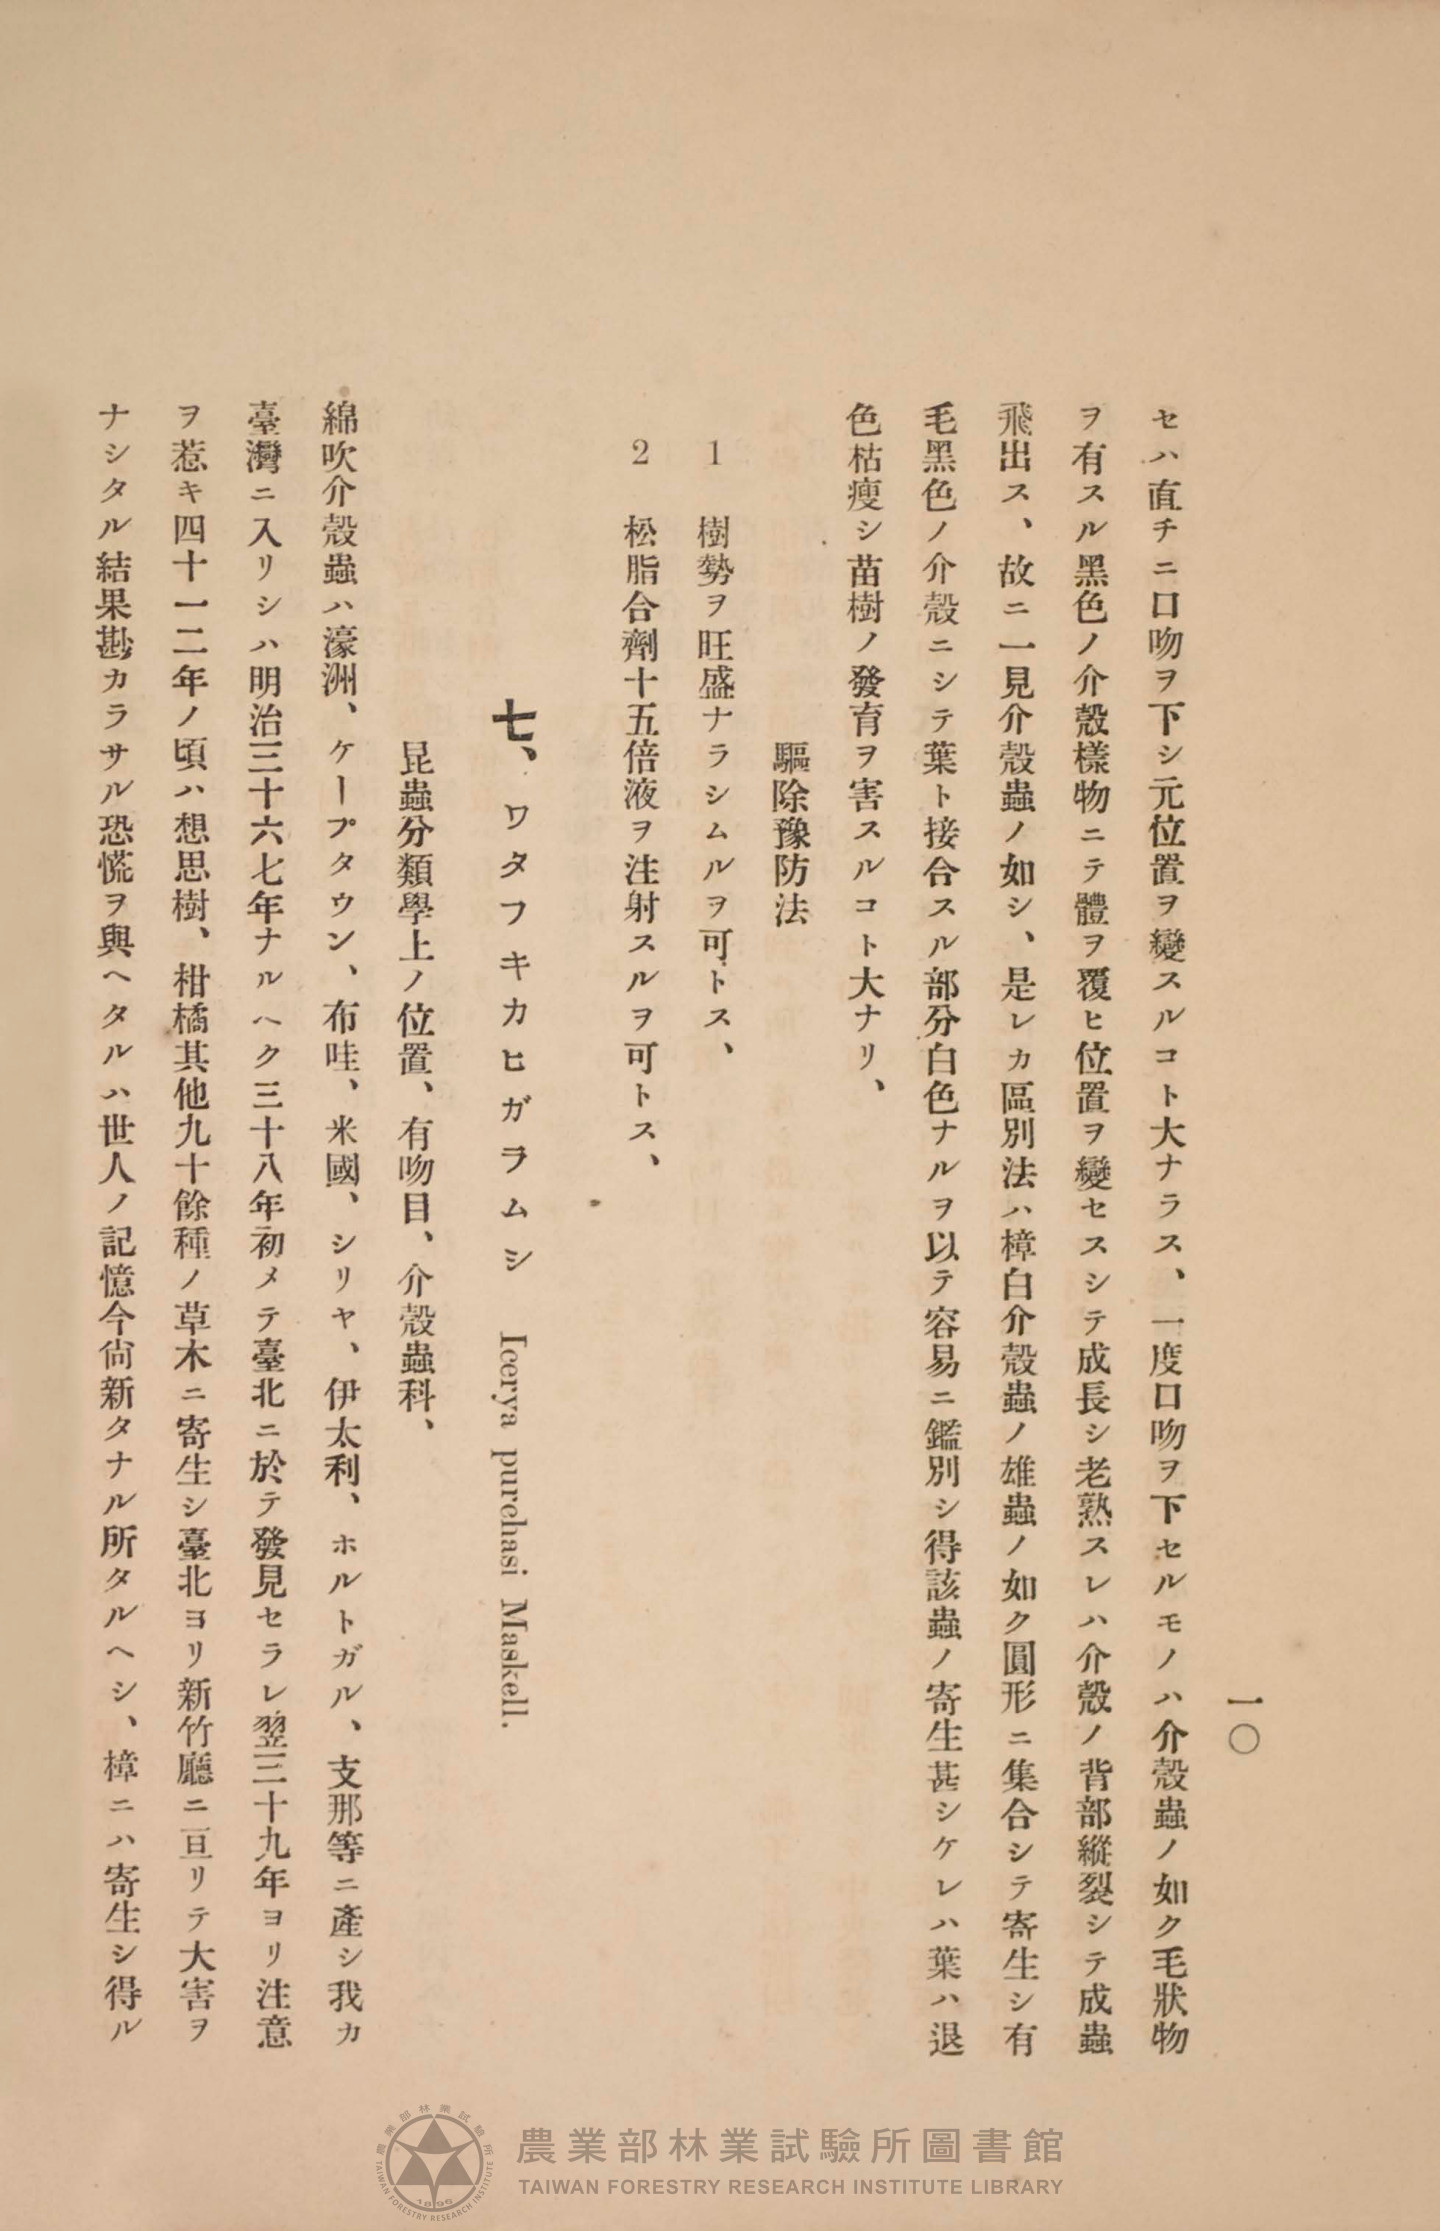 一〇
セハ直チニ口吻ヲ下シ元位置ヲ變スルコト大ナラス、一度口吻ヲ下セルモノハ介殼蟲ノ如ク毛狀物
ヲ有スル黑色ノ介殼樣物ニテ體ヲ覆ヒ位置ヲ變セスシテ成長シ老熟スレハ介殼ノ背部縱裂シテ成蟲
飛出ス、故ニ一見介殼蟲ノ如シ、是レカ區別法ハ樟白介殼蟲ノ雄蟲ノ如ク圓形ニ集合シテ寄生シ有
毛黑色ノ介殼ニシテ葉ト接合スル部分白色ナルヲ以テ容易ニ鑑別シ得該蟲ノ寄生甚シケレハ葉ハ退
色枯瘦シ苗樹ノ發育ヲ害スルコト大ナリ、
驅除豫防法
1 樹勢ヲ旺盛ナラシムルヲ可トス、
2 松脂合劑十五倍液ヲ注射スルヲ可トス、
七、ワタフキカヒガラムシ Icerya purchasi Maskell.
昆蟲分類學上ノ位置、有吻目、介殼蟲科、
綿吹介殼蟲ハ濠洲、ケープタウン、布哇、米國、シリヤ、伊太利、ホルトガル、支那等ニ產シ我カ
臺灣ニ入リシハ明治三十六七年ナルヘク三十八年初メテ臺北ニ於テ發見セラレ翌三十九年ヨリ注意
ヲ惹キ四十一二年ノ頃ハ想思樹、柑橘其他九十餘種ノ草木ニ寄生シ臺北ヨリ新竹廳ニ亘リテ大害ヲ
ナシタル結果尠カラサル恐慌ヲ與ヘタルハ世人ノ記憶今尙新タナル所タルヘシ、樟ニハ寄生シ得ル
農業部林業試驗所圖書館
TAIWAN FORESTRY RESEARCH INSTITUTE LIBRARY
農業部林業試驗所
TAIWAN FORESTRY RESEARCH INSTITUTE
1896